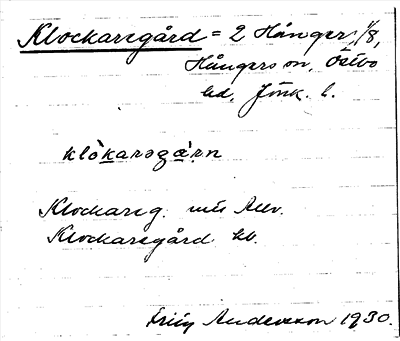 Klockaregård = 2 Hånger, 1/8,
Hångers sn, Östbo
hd, Jönk. l.
klòkarəgà:rn
Klockareg. Allv.
Klockaregård kb.
Andersson 1930.